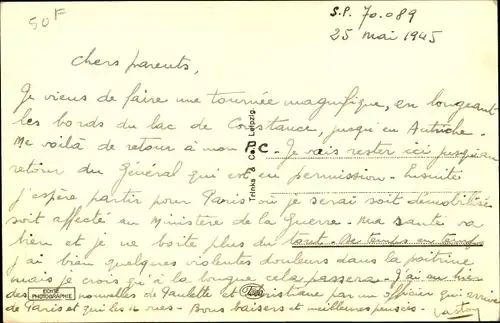 50F
S.P. 70.089
25 mai 1945
chers parents,
Je viens de faire une tournée magnifique, en longeant
les bords du lac de Constance, jusqu'en Autriche.
Me voilà de retour à mon P.C. Je vais rester ici jusqu'au
retour du Général qui est en permission. Ensuite
j'espère partir pour Paris où je serai soit démobilisé
soit affecté au Ministère de la Guerre. Ma santé va
bien et je ne boite plus du tout. De temps en temps
j'ai bien quelques violentes douleurs dans la poitrine
mais je crois qu'à la longue cela passera. J'ai eu hier
des nouvelles de Paulette et Christiane par un officier qui arrive
de Paris et qui les a vues. Bons baisers et meilleures pensées.
Trinks & Co. Leipzig
ECHTE
PHOTOGRAPHIE